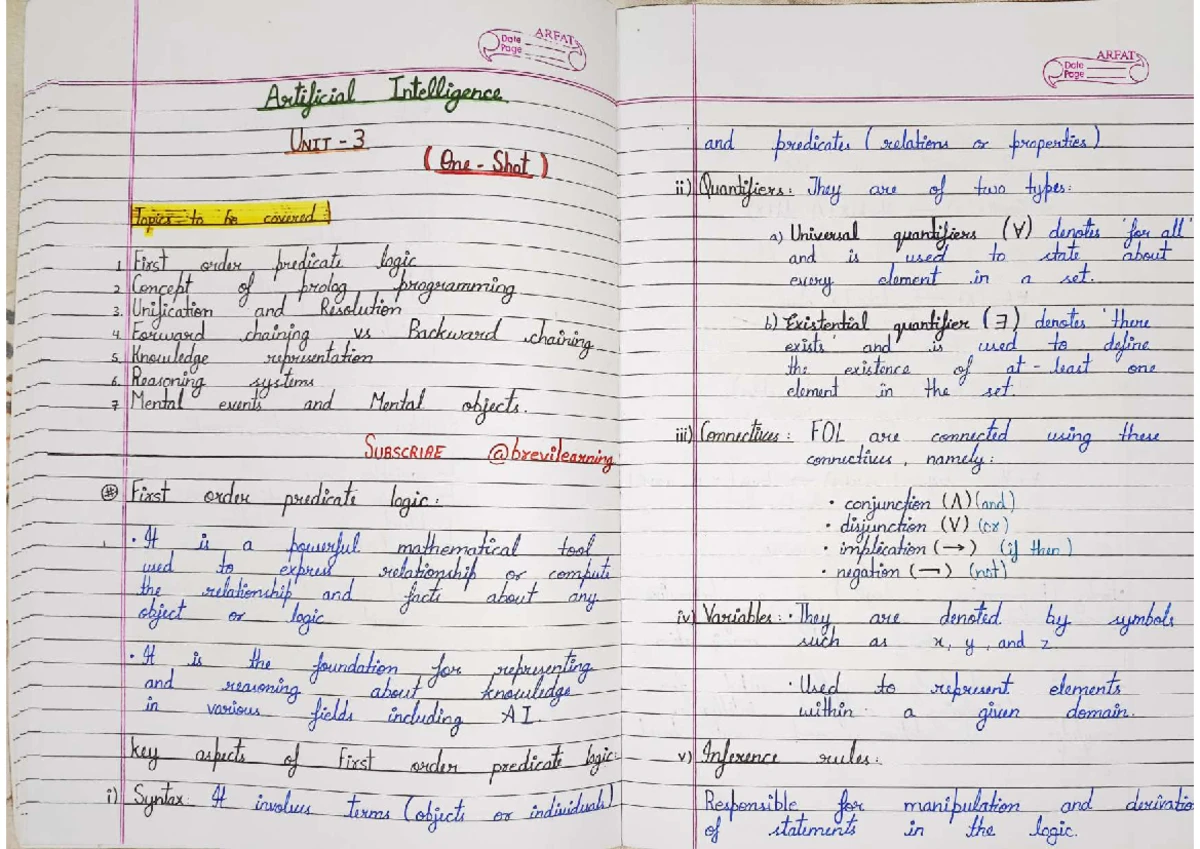 ARFAT
Date
Page
Artificial Intelligence
UNIT - 3
( One - Shot )
Topics to be covered :
1. First order predicate logic
2. Concept of prolog programming
3. Unification and Resolution
4. Forward chaining vs Backward chaining
5. Knowledge representation
6. Reasoning systems
7. Mental events and Mental objects.
SUBSCRIBE @brevilearning
# First order predicate logic :
• It is a powerful mathematical tool
used to express relationship or compute
the relationship and facts about any
object or logic
• It is the foundation for representing
and reasoning about knowledge
in various fields including AI
key aspects of First order predicate logic:
i) Syntax: It involves terms (objects or individuals)
ARFAT
Date
Page
and predicates ( relations or properties )
ii) Quantifiers : They are of two types:
a) Universal quantifiers (∀) denotes 'for all'
and is used to state about
every element in a set.
b) Existential quantifier (∃) denotes 'there
exists' and is used to define
the existence of at-least one
element in the set.
iii) Connectives : FOL are connected using these
connectives, namely:
• conjunction (Λ) (and)
• disjunction (V) (or)
• implication (→) (if then)
• negation (—) (not)
iv) Variables : • They are denoted by symbols
such as x, y, and z
• Used to represent elements
within a given domain.
v) Inference rules :
Responsible for manipulation and derivatio
of statements in the logic.